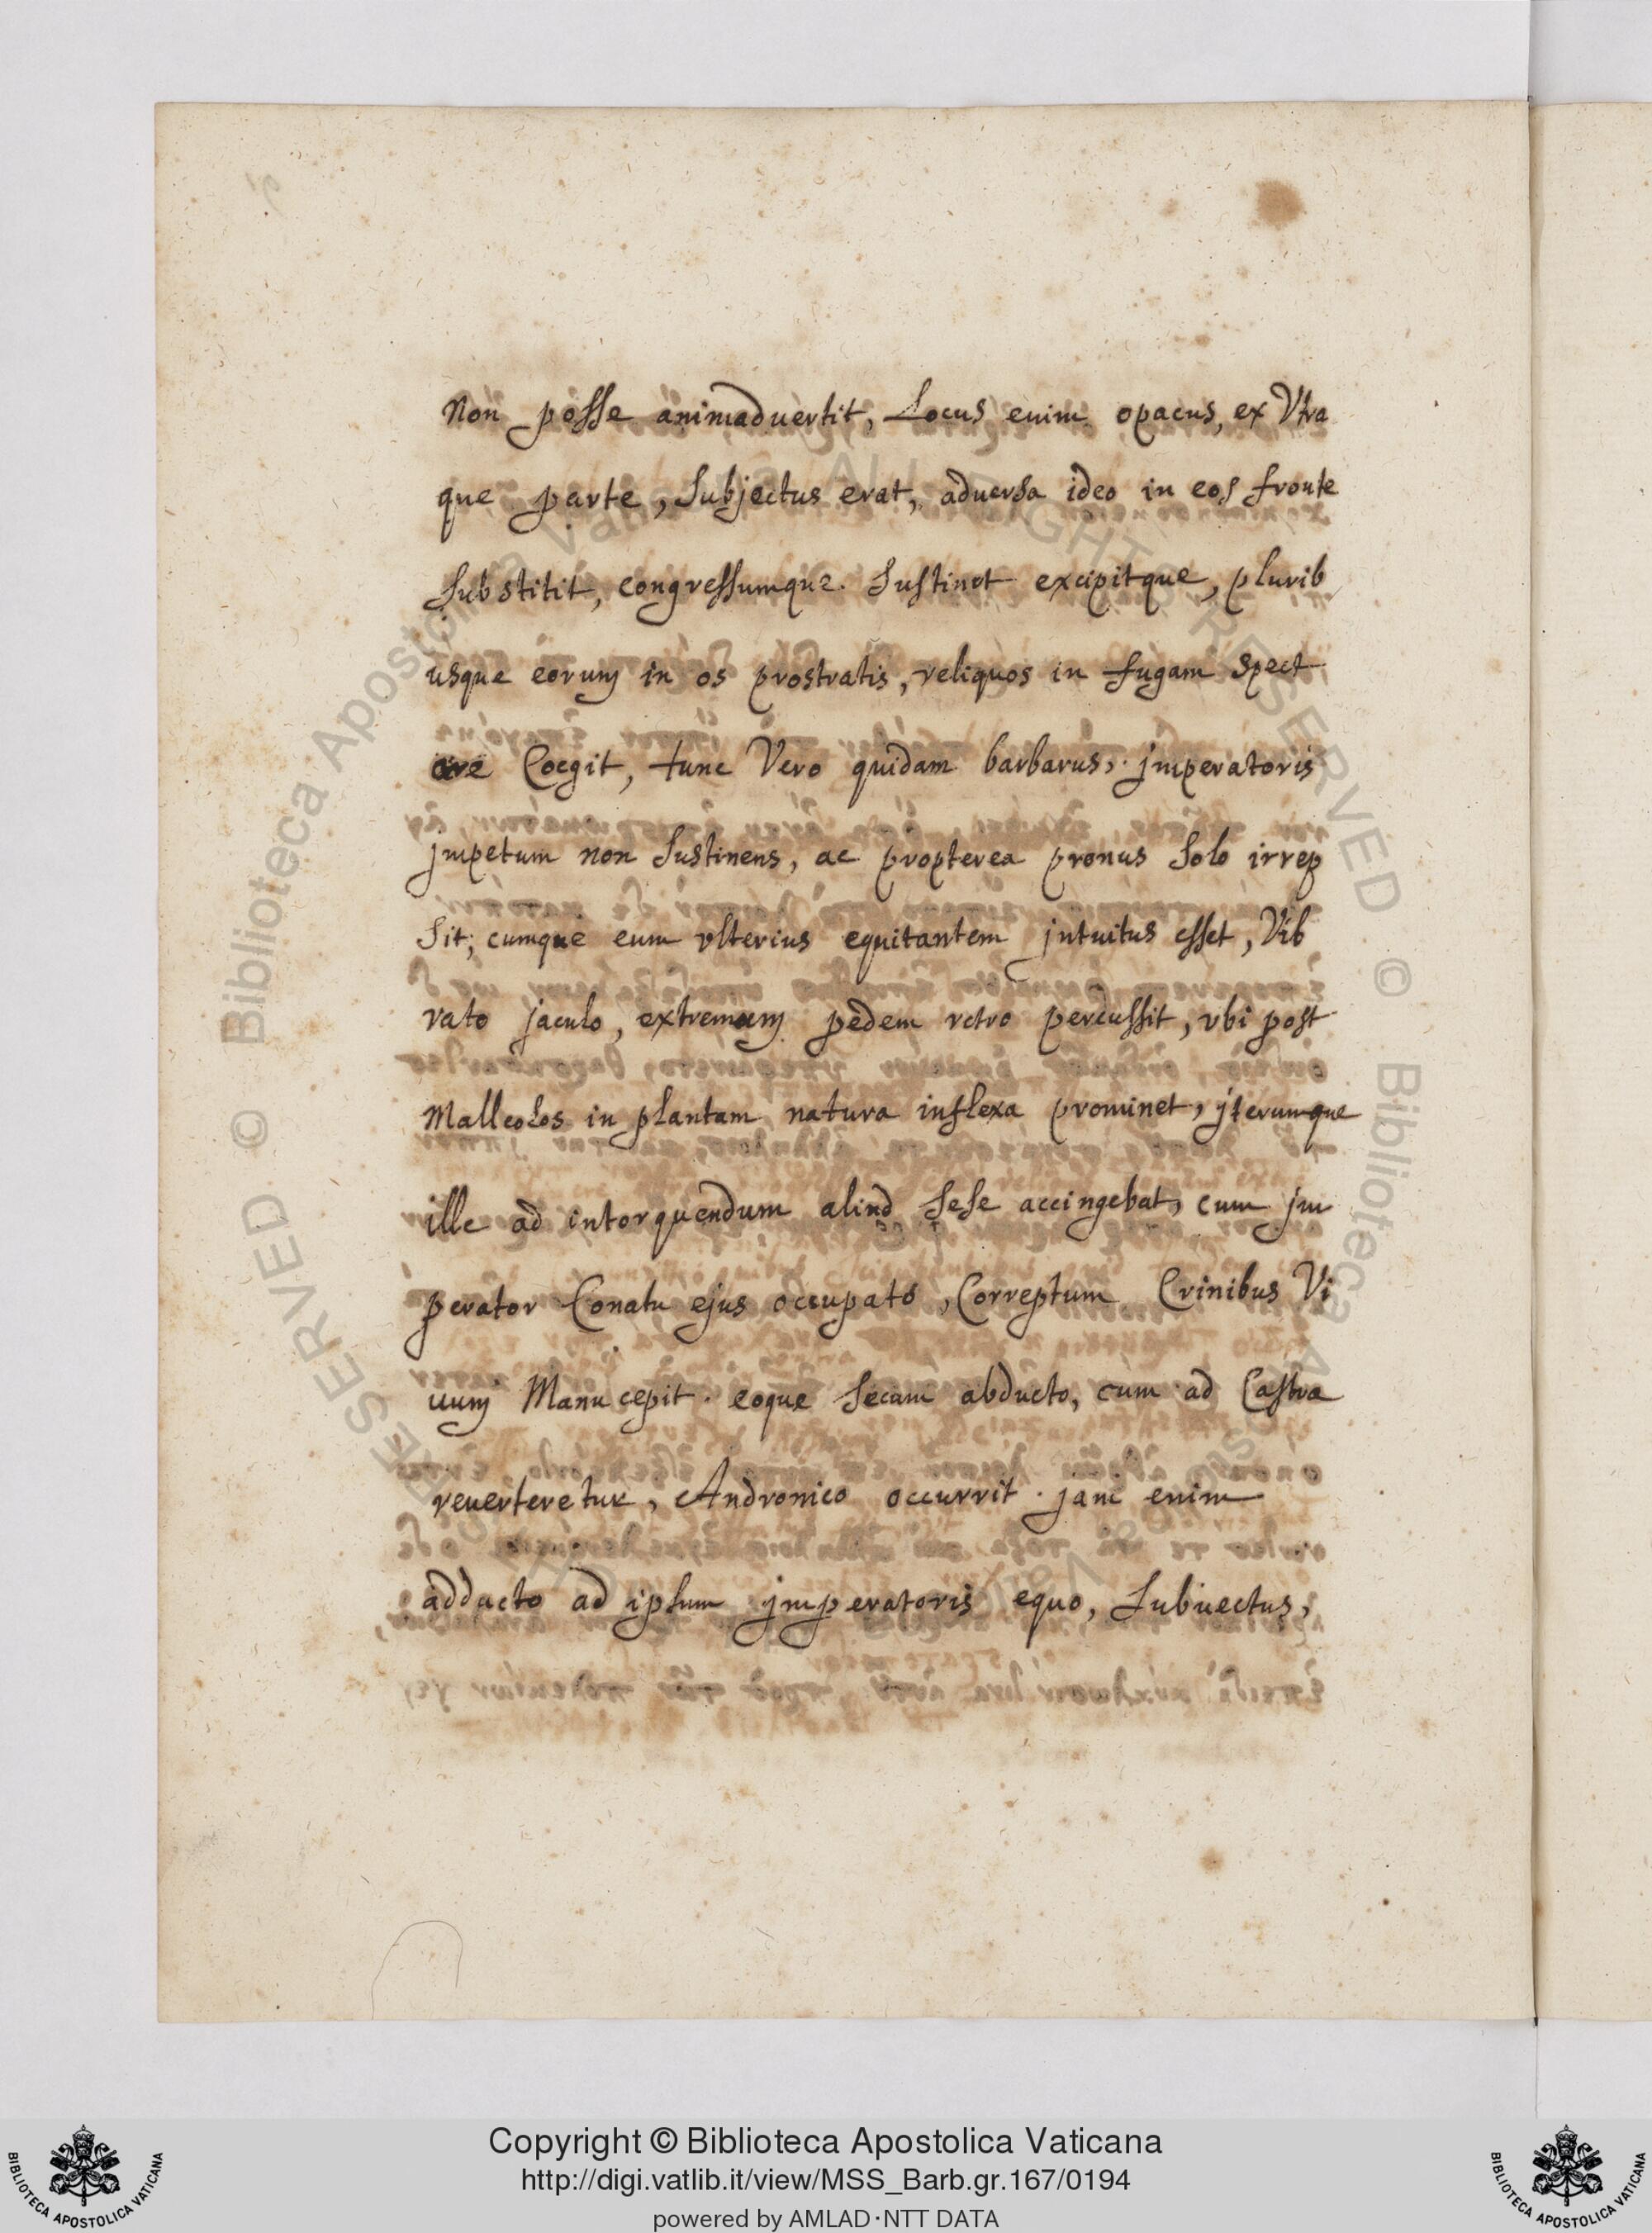 Non posse animaduertit, Locus enim opacus, ex Vtra
que parte, Subjectus erat, aduersa ideo in eos fronte
Substitit, congressumque. Sustinet excipitque, plurib
usque eorum in os prostratis, reliquos in fugam Spect
are Coegit, tunc Vero quidam barbarus, imperatoris
jmpetum non Sustinens, ac propterea pronus Solo irrep
Sit, cumque eum vlterius equitantem jntuitus esset, Vib
rato jaculo, extremum pedem retro percussit, vbi post
Malleolos in plantam natura inflexa prominet, jterumque
ille ad intorquendum aliud Sese accingebat, cum jm
perator Conatu ejus occupato, Correptum Crinibus Vi
uum Manu cepit. eoque Secum abducto, cum ad Castra
reuerteretur, Andronico occurrit. jam enim
adducto ad ipsum jmperatoris equo, Subuectus,
Copyright © Biblioteca Apostolica Vaticana
http://digi.vatlib.it/view/MSS_Barb.gr.167/0194
powered by AMLAD·NTT DATA
BIBLIOTECA APOSTOLICA VATICANA
BIBLIOTECA APOSTOLICA VATICANA